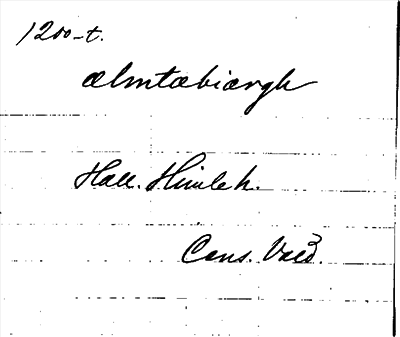 1200-t.
ælmtæbiærgh
Hall. Himle h.
Cens. Vald.